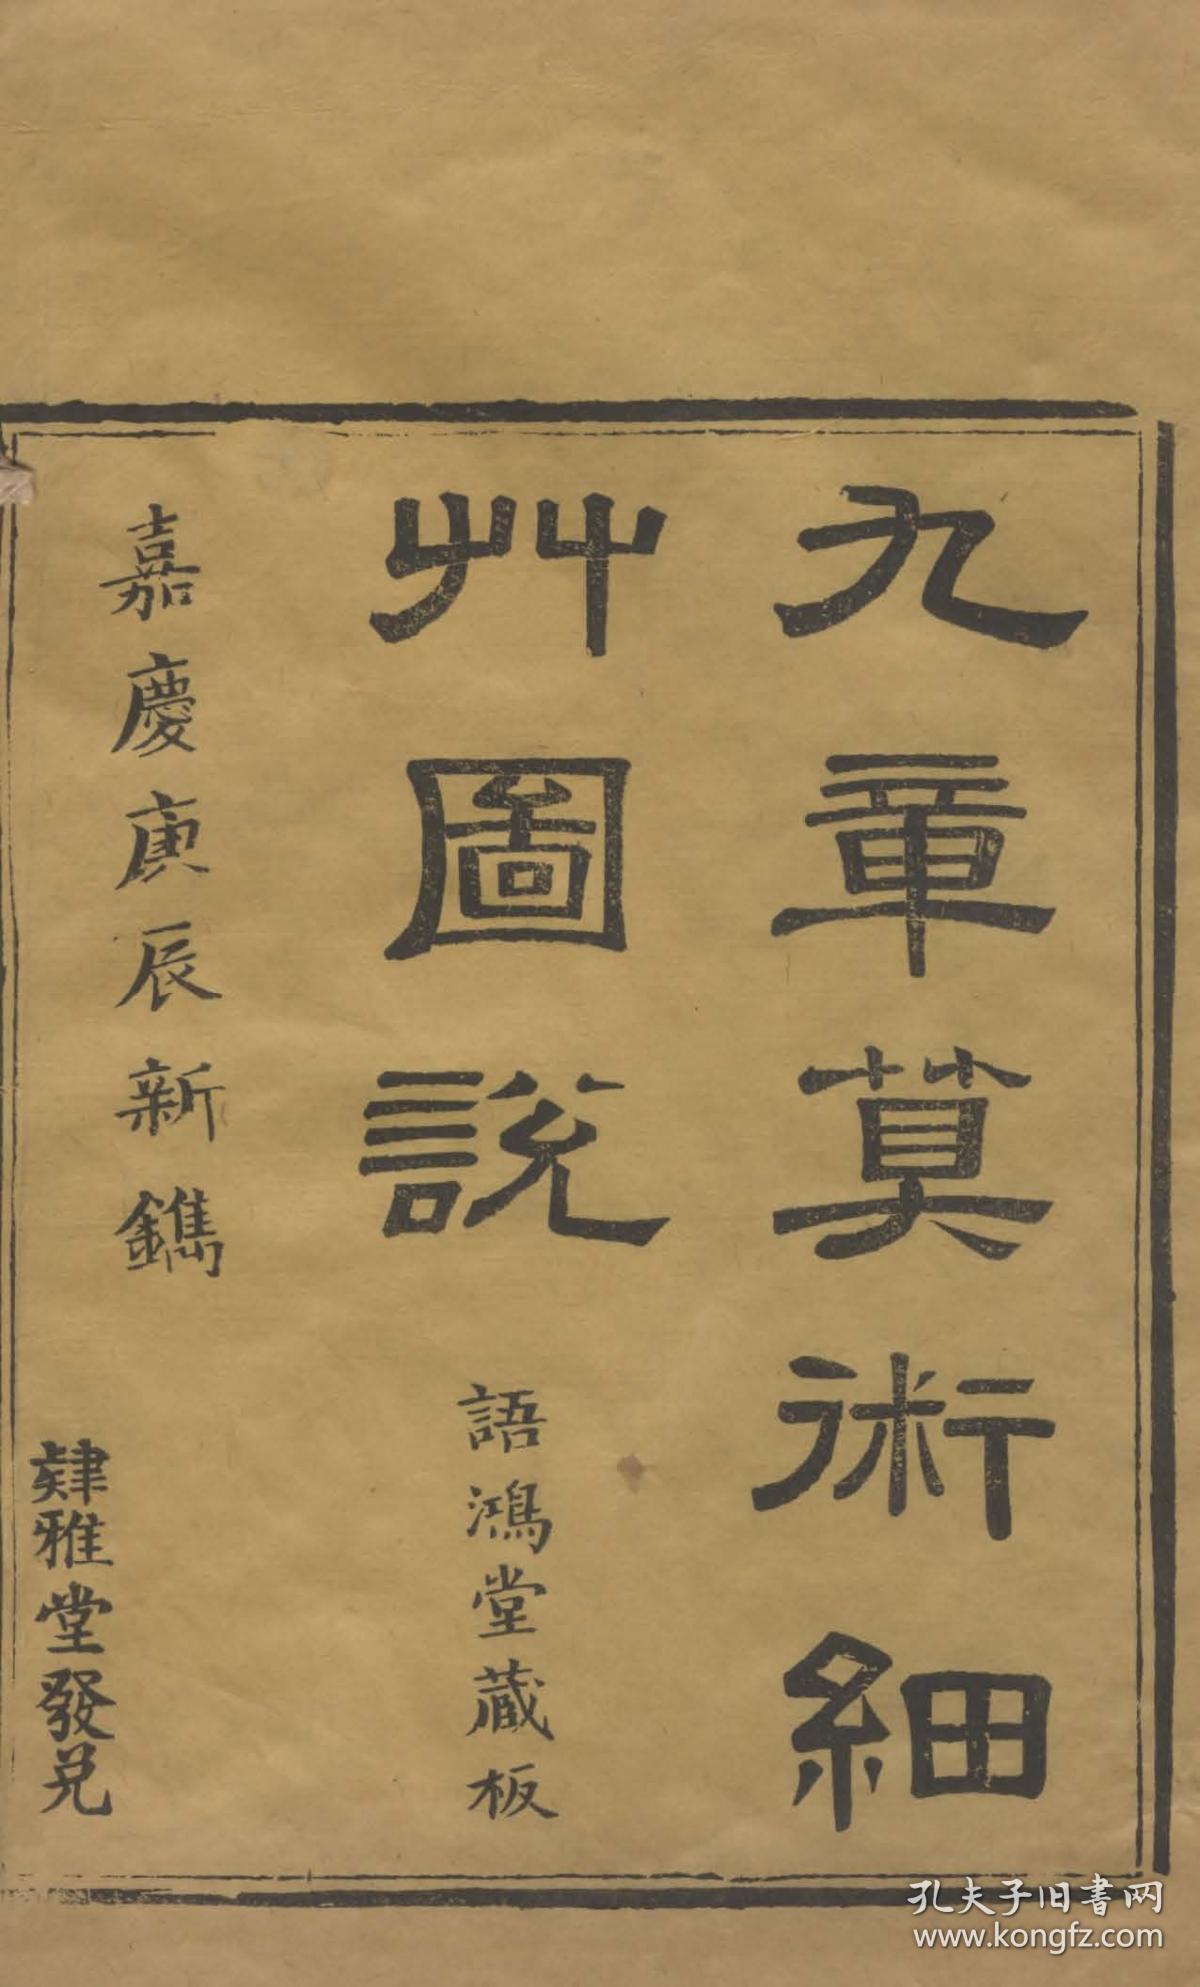 九章算術細
艸圖說
語鴻堂藏板
嘉慶庚辰新鐫
肄雅堂發兌
孔夫子旧書网
www.kongfz.com